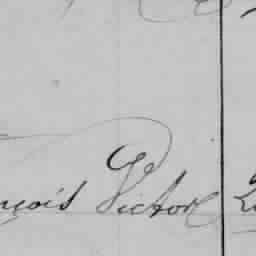 nçois Victor